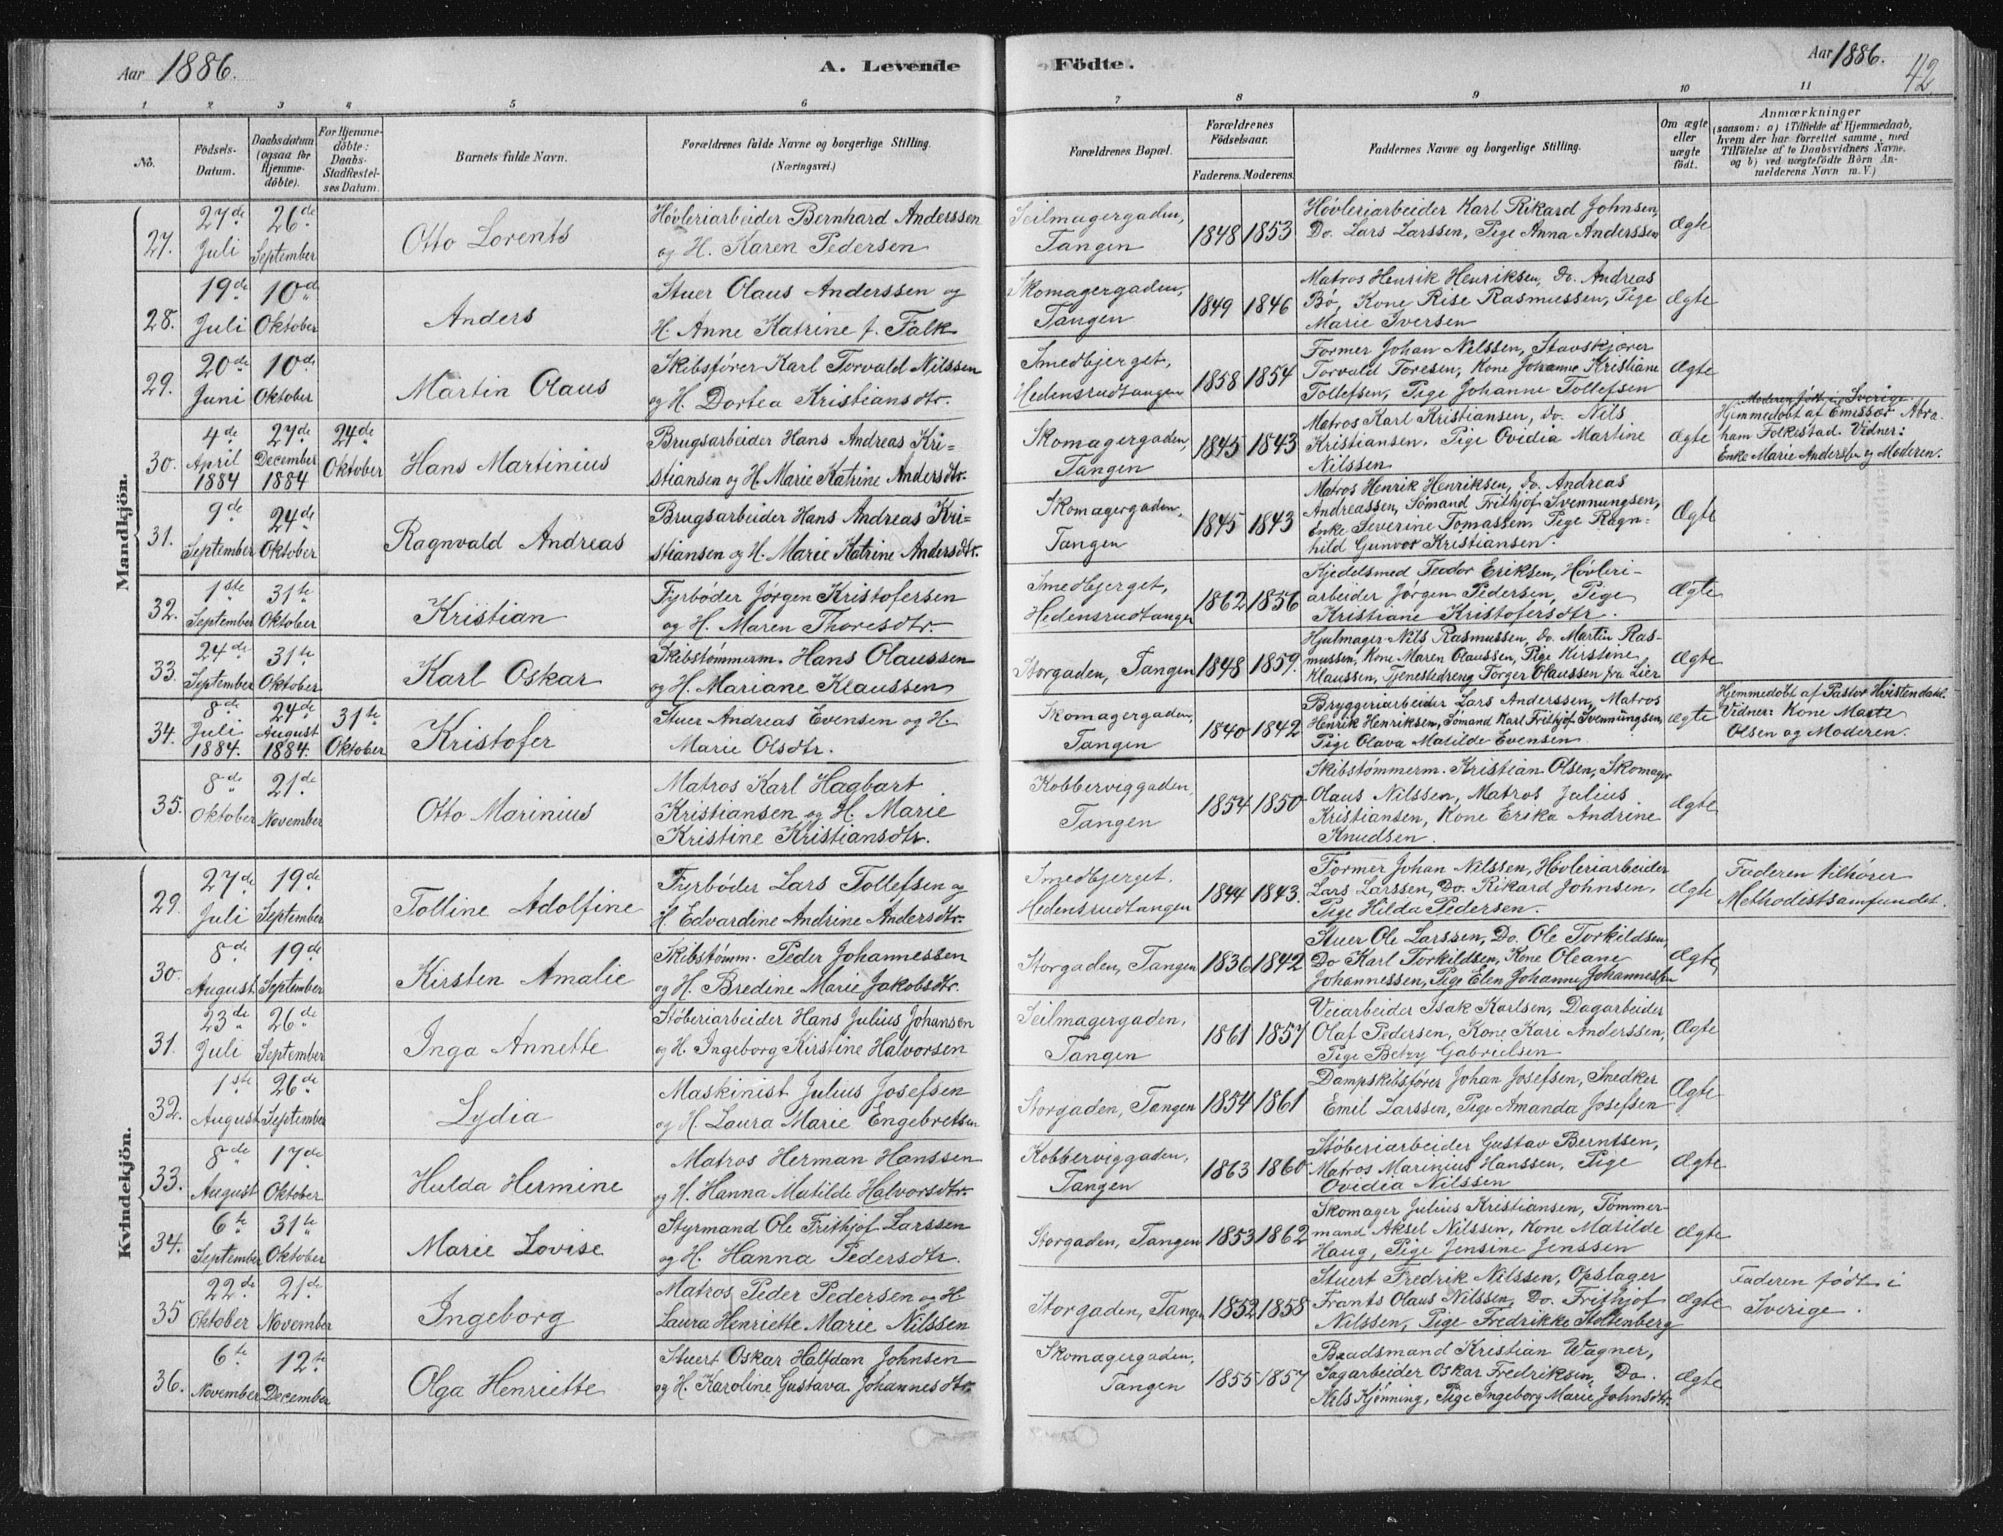 Aar 1886.
A. Levende
Födte.
Aar 1886.
42
1 2 3 4 5 6 7 8 9 10 11
No.
Födsels-Datum.
Daabsdatum (ogsaa för Hjemme-döbte).
For Hjemme-döbte: Daabs-Stadfæstel-ses Datum.
Barnets fulde Navn.
Forældrenes fulde Navne og borgerlige Stilling.
(Næringsvei.)
Forældrenes Bopæl.
Forældrenes Födselsaar.
Faderens. Moderens.
Faddernes Navne og borgerlige Stilling.
Om ægte eller uægte födt.
Anmærkninger
(saasom: a) i Tilfælde af Hjemmedaab, hvem der har forrettet samme, med Tilföielse af to Daabsvidners Navne, og b) ved uægtefödte Börn Anmelderens Navn m. V.)
Mandkjön.
27. 27de Juli 26de September Otto Lorents
Høvleriarbeider Bernhard Anderssen
og H. Karen Pedersen
Seilmagergaden, Tangen 1848 1853
Høvleriarbeider Karl Rikard Johnsen,
Do. Lars Larssen, Pige Anna Anderssen
Ægte
28. 19de Juli 10de Oktober Anders
Stuer Olaus Anderssen og
H. Anne Katrine f. Falk
Skomagergaden, Tangen 1849 1846
Matros Henrik Henriksen, Do. Andreas
Bø, Kone Rise Rasmussen, Pige
Marie Iversen
Ægte
29. 20de Juni 10de Oktober Martin Olaus
Skibsfører Karl Torvald Nilssen
og H. Dortea Kristiansdtr.
Smedbjerget, Hedensrudtangen 1858 1854
Former Johan Nilssen, Stavskjærer
Torvald Toresen, Kone Johanne Kristiane
Tollefsen, Pige Johanne Tollefsen
Ægte
Moderen født i Sverige.
30. 4de April 1884 27de December 1884 24de Oktober Hans Martinius
Brugsarbeider Hans Andreas Kri-
stiansen og H. Marie Katrine Andersdtr.
Skomagergaden, Tangen 1845 1843
Matros Karl Kristiansen, do. Nils
Kristiansen. Pige Ovidia Martine
Nilssen
Ægte
Hjemmedøbt af Emissær Abra-
ham Folkestad. Vidner:
Enke Marie Anderssen og Moderen.
31. 9de September 24de Oktober Ragnvald Andreas
Brugsarbeider Hans Andreas Kri-
stiansen og H. Marie Katrine Andersdtr.
Skomagergaden, Tangen 1845 1843
Matros Henrik Henriksen, do. Andreas
Andreassen, Sømand Frithjof Svennungsen,
Enke Severine Tomassen, Pige Ragn-
hild Gunvor Kristiansen.
Ægte
32. 1ste September 31te Oktober Kristian
Fyrbøder Jørgen Kristofersen
og H. Maren Thoresdtr.
Smedbjerget, Hedensrudtangen 1862 1856
Kjedelsmed Teodor Eriksen, Høvleri-
arbeider Jørgen Pedersen, Pige
Kristiane Kristofersdtr.
Ægte
33. 24de September 31te Oktober Karl Oskar
Skibstømmerm. Hans Olaussen
og H. Mariane Klaussen
Storgaden, Tangen 1848 1859.
Hjulmager Nils Rasmussen, do. Martin Ras-
mussen, Kone Maren Olaussen, Pige Kirstine
Klaussen, Tjenestedreng Torger Olaussen fra Lier
Ægte
34. 8de Juli 1884. 24de August 1884. 31te Oktober Kristofer
Stuer Andreas Evensen og H.
Marie Olsdtr.
Skomagergaden, Tangen 1840 1842
Bryggeriarbeider Lars Anderssen, Matros
Henrik Henriksen, Sømand Karl Frithjof Svennungsen,
Pige Olava Matilde Evensen
Ægte
Hjemmedøbt af Pastor Hvistendahl.
Vidner: Kone Marte
Olsen og Moderen.
35. 8de Oktober 21de November Otto Marinius
Matros Karl Hagbart
Kristiansen og H. Marie
Kristine Kristiansdtr.
Kobberviggaden, Tangen 1854 1850
Skibstømmerm. Kristian Olsen, Skomager
Olaus Nilssen, Matros Julius
Kristiansen, Kone Erika Andrine
Knudsen.
Ægte
Kvindekjön.
29. 27de Juli 19de September Tolline Adolfine
Fyrbøder Lars Tollefsen og
H. Edvardine Andrine Andersdtr.
Smedbjerget. Hedensrudtangen 1844 1843.
Former Johan Nilssen, Høvleriarbeider
Lars Larssen, Do. Rikard Johnsen,
Pige Hilda Pedersen.
Ægte
Faderen tilhører
Methodistsamfundet.
30. 8de August 19de September Kirsten Amalie
Skibstømm. Peder Johannessen
og H. Bredine Marie Jakobsdtr.
Storgaden, Tangen 1836 1842
Stuer Ole Larssen, Do. Ole Torkildsen,
Do Karl Torkildsen, Kone Oleane
Johannessen, Pige Elen Johanne Johannessen
Ægte
31. 23de Juli 26de September Inga Annette
Støberiarbeider Hans Julius Johansen
og H. Ingeborg Kirstine Halvorsen
Seilmagergaden, Tangen 1861 1857
Veiarbeider Isak Karlsen, Dagarbeider
Olaf Pedersen, Kone Kari Anderssen,
Pige Betzy Gabrielsen
Ægte
32. 1ste August 26de September Lydia
Maskinist Julius Josefsen
og H. Laura Marie Engebretsen
Storgaden, Tangen 1854 1861
Dampskibsfører Johan Josefsen, Snedker
Emil Larssen, Pige Amanda Josefsen
Ægte
33. 8de August 17de Oktober Hulda Hermine
Matros Herman Hanssen
og H. Hanna Matilde Halvorsdtr.
Kobberviggaden, Tangen 1863 1860
Støberiarbeider Gustav Berntsen,
Matros Marinius Hanssen, Pige
Ovidia Nilssen
Ægte
34. 6te September 31te Oktober Marie Lovise
Styrmand Ole Frithjof Larssen
og H. Hanna Pedersdtr.
Storgaden, Tangen 1853 1862
Skomager Julius Kristiansen, Tømmer-
mand Aksel Nilssen, Kone Matilde
Haug, Pige Jensine Jenssen
Ægte
35 22de Oktober 21de November Ingeborg
Matros Peder Pedersen og H.
Laura Henriette Marie Nilssen
Storgaden, Tangen 1852 1858
Stuert Fredrik Nilssen, Opslager
Frants Olaus Nilssen, Do. Frithjof
Nilssen, Pige Fredrikke Stoltenberg
Ægte
Faderen født i
Sverige.
36. 6te November 12te December Olga Henriette
Stuert Oskar Halfdan Johnsen
og H. Karoline Gustava Johannesdtr.
Skomagergaden, Tangen 1855 1857
Baadsmand Kristian Wagner,
Sagarbeider Oskar Fredriksen, Do.
Nils Kjønning, Pige Ingeborg Marie Johnsdtr.
Ægte